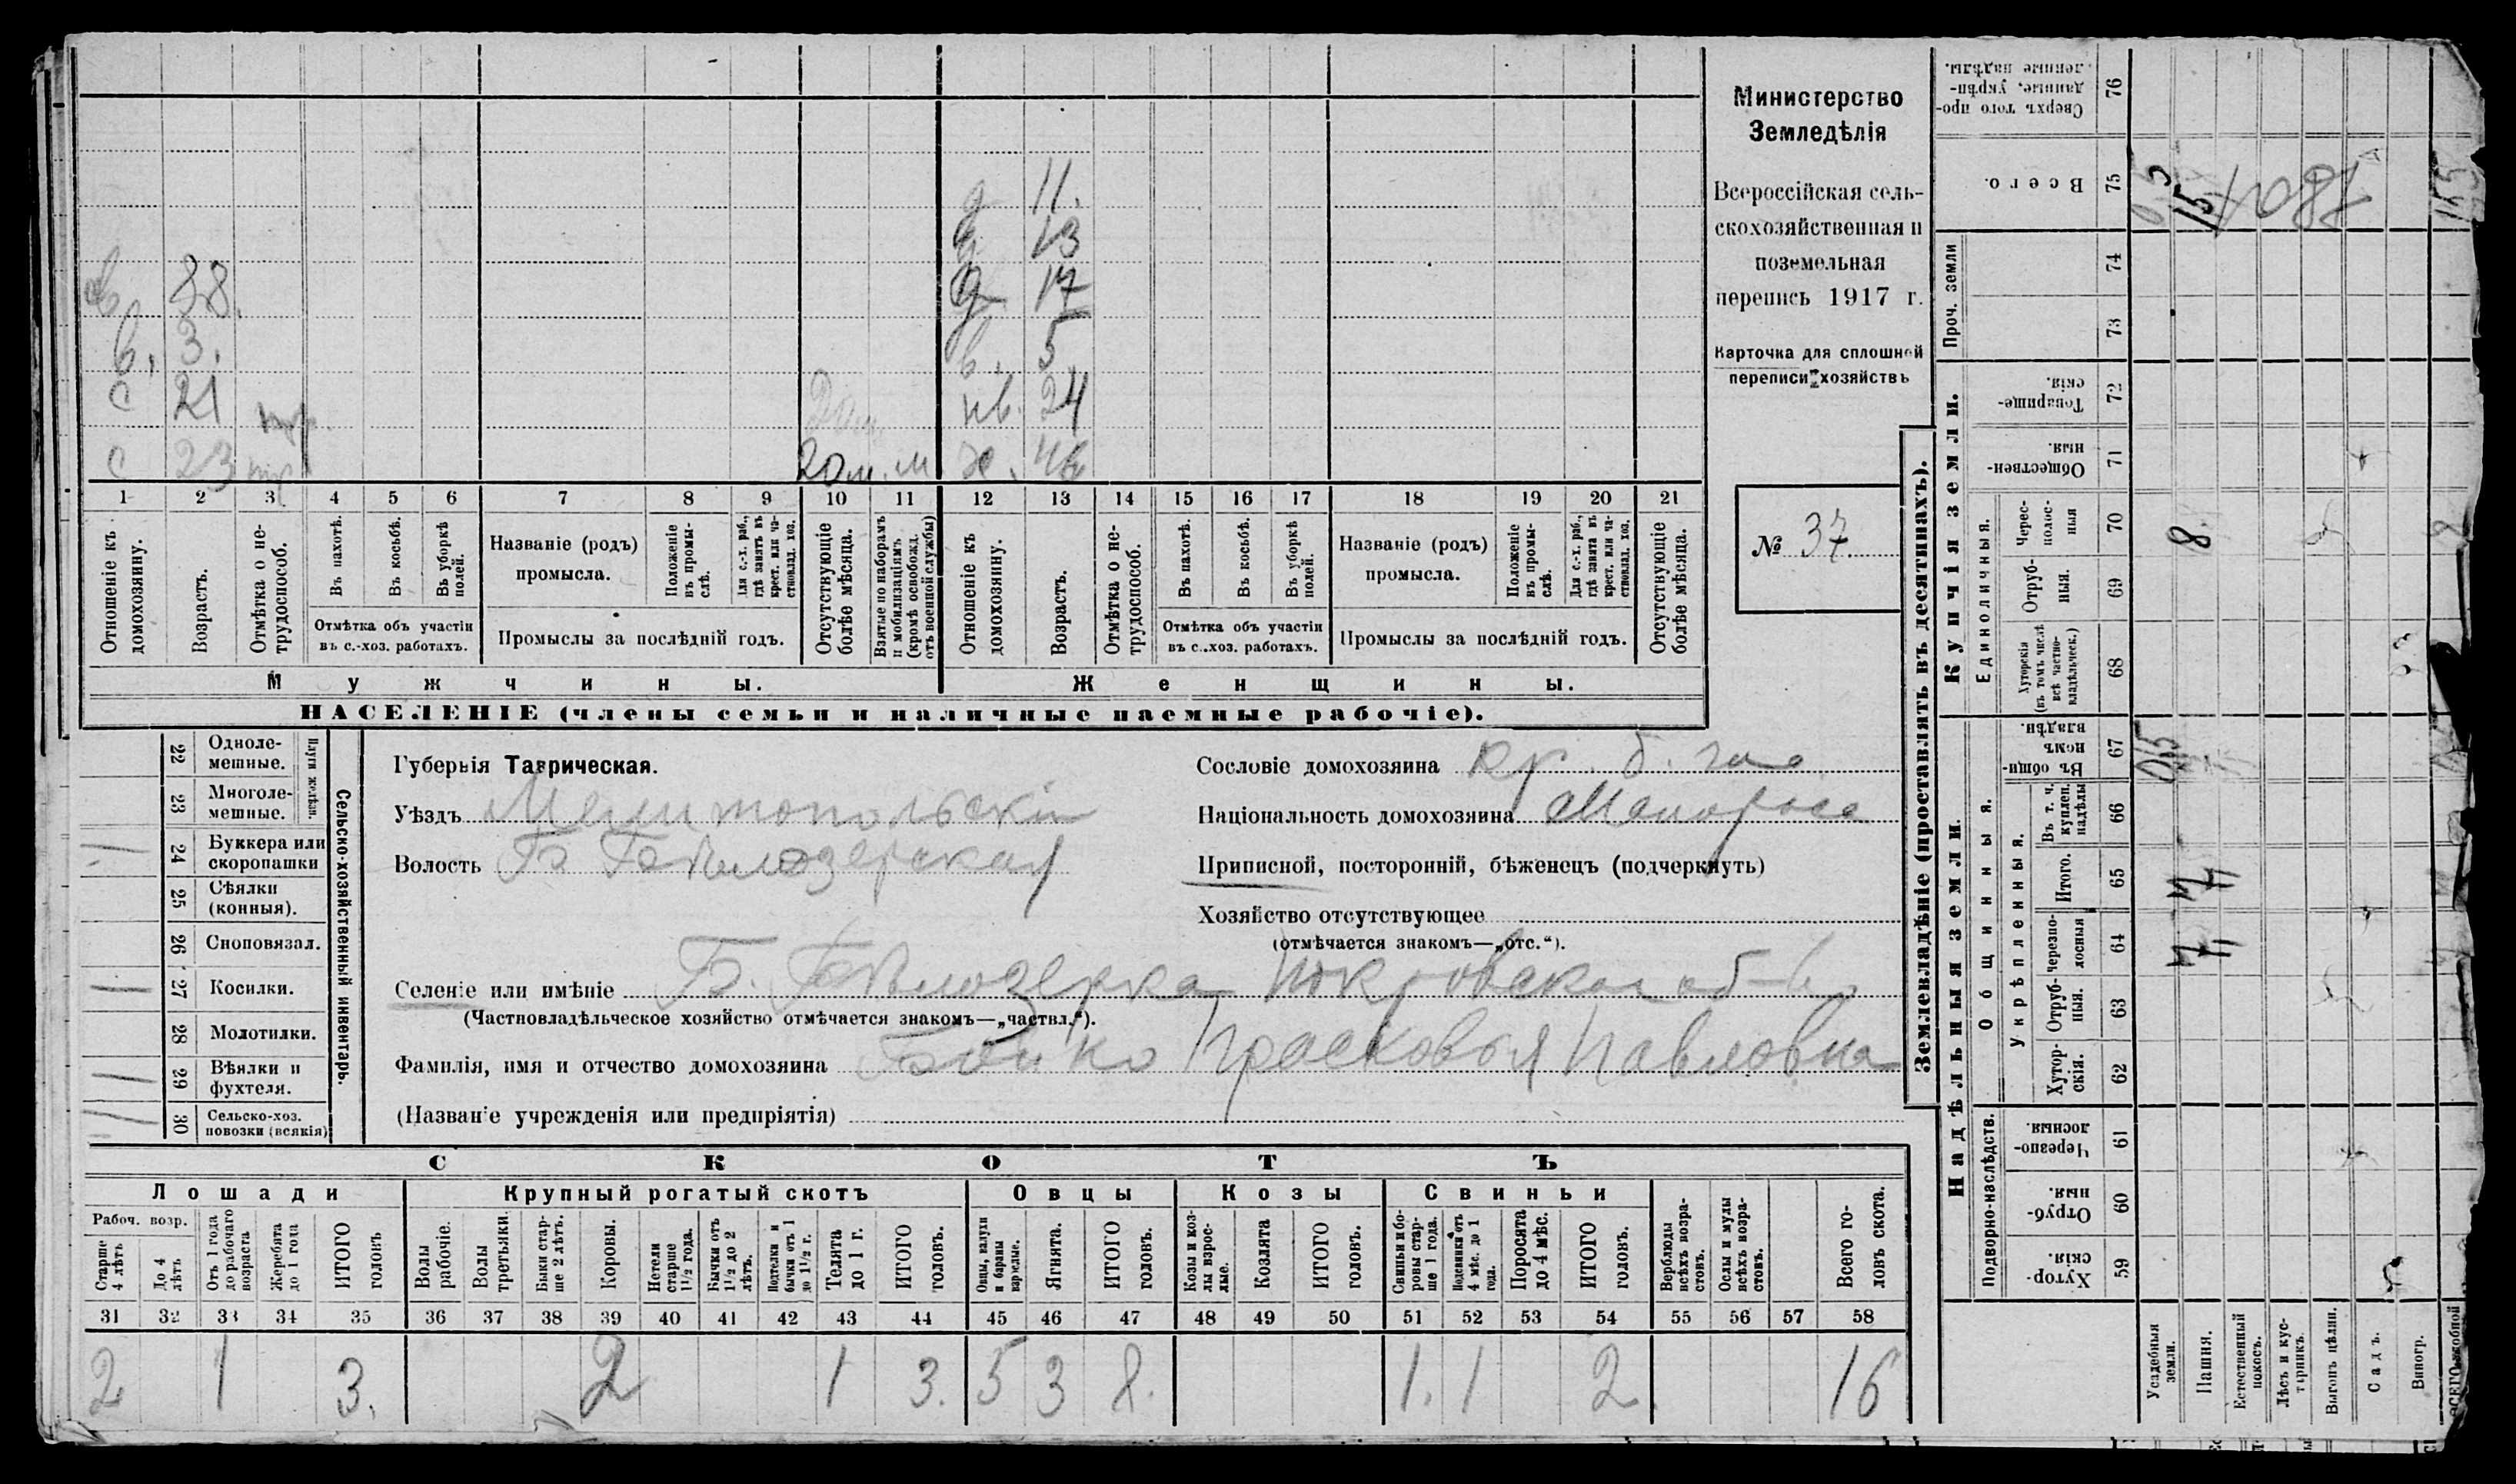 Министерство
Земледѣлія
Всероссійская сель-
скохозяйственная и
поземельная
перепись 1917 г.
Карточка для сплошной
переписи хозяйствъ
№ 37.
д 11.
д 13
38. д 17
в. 3. в. 5
с 21 нв. 24
с 23 20 м. м ж. 46
1 2 3 4 5 6 7 8 9 10 11 12 13 14 15 16 17 18 19 20 21
Отношеніе къ домохозяину.
Возрастъ.
Отмѣтка о не-трудоспособ.
Въ пахотѣ.
Въ косьбѣ.
Въ уборкѣ полей.
Отмѣтка объ участіи
въ с.-хоз. работахъ.
Названіе (родъ)
промысла.
Положеніе въ промы-слѣ.
Для с.-х. раб., гдѣ занятъ въ крест. или ча-стновлад. хоз.
Промыслы за послѣдній годъ.
Отсутствующіе болѣе мѣсяца.
Взятые по наборамъ и мобилизаціямъ (кромѣ освобожд. отъ военной службы)
Отношеніе къ домохозяину.
Возрастъ.
Отмѣтка о не-трудоспособ.
Въ пахотѣ.
Въ косьбѣ.
Въ уборкѣ полей.
Отмѣтка объ участіи
въ с.-хоз. работахъ.
Названіе (родъ)
промысла.
Положеніе въ промы-слѣ.
Для с.-х. раб., гдѣ занята въ крест. или ча-стновлад. хоз.
Промыслы за послѣдній годъ.
Отсутствующіе болѣе мѣсяца.
Мужчины. Женщины.
НАСЕЛЕНІЕ (члены семьи и наличные наемные рабочіе).
Сельско-хозяйственный инвентарь.
22 Одноле-мешные.
23 Многоле-мешные.
24 Буккера или скоропашки
25 Сѣялки (конныя).
26 Сноповязал.
27 Косилки.
28 Молотилки.
29 Вѣялки и фухтеля.
30 Сельско-хоз. повозки (всякія)
Губернія Таврическая.
Уѣздъ Мелитопольскій
Волость Б Бѣлозерская
Сословіе домохозяина кр.
Національность домохозяина Малоросс
Приписной, посторонній, бѣженецъ (подчеркнуть)
Хозяйство отсутствующее
(отмѣчается знакомъ—„отс.“).
Селеніе или имѣніе Б. Бѣлозерка Покровская об-во
(Частновладѣльческое хозяйство отмѣчается знакомъ—„частвл.“).
Фамилія, имя и отчество домохозяина Бойко Прасковья Павловна
(Названіе учрежденія или предпріятія)
СКОТЪ
Лошади Крупный рогатый скотъ Овцы Козы Свиньи
Рабоч. возр.
Старше 4 лѣтъ
До 4 лѣтъ
Отъ 1 года до рабочаго возраста
Жеребята до 1 года
ИТОГО головъ
Волы рабочіе.
Волы третьяки.
Быки стар-ше 2 лѣтъ.
Коровы.
Нетели старше 1½ года.
Бычки отъ 1½ до 2 лѣтъ.
Подтелки и бычки отъ 1 до 1½ г.
Телята до 1 г.
ИТОГО головъ.
Овцы, валухи и бараны взрослые.
Ягнята.
ИТОГО головъ.
Козы и коз-лы взрос-лые.
Козлята
ИТОГО головъ.
Свиньи и бо-ровы стар-ше 1 года.
Подсвинки отъ 4 мѣс. до 1 года.
Поросята до 4 мѣс.
ИТОГО головъ.
Верблюды всѣхъ возра-стовъ.
Ослы и мулы всѣхъ возра-стовъ.
Всего го-ловъ скота.
31 32 33 34 35 36 37 38 39 40 41 42 43 44 45 46 47 48 49 50 51 52 53 54 55 56 57 58
2 1 3. 2 1 3. 5 3 8. 1. 1 2 16
Землевладѣніе (проставлять въ десятинахъ).
Купчія земли.
Надѣльныя земли.
Сверхъ того про-данные, укрѣп-ленные надѣлы. 76
Всего. 75
Проч. земли 74 73
Товарище-скія. 72
Обществен-ныя. 71
Единоличныя.
Черес-полос-ныя 70 8
Отруб-ныя. 69
Хуторскія (въ томъ числѣ всѣ частно-владѣльческ.) 68
Общинныя.
Въ общин-номъ владѣн. 67
Укрѣпленныя.
Въ т. ч. куплен. надѣлы 66
Итого. 65 7
Черезпо-лосныя 64 7
Отруб-ныя. 63
Хутор-скія. 62
Подворно-наслѣдств.
Черезпо-лосныя. 61
Отруб-ныя. 60
Хутор-скія. 59
Усадебныя земли.
Пашня.
Естественный покосъ.
Лѣсъ и кус-тарникъ.
Выгонъ цѣлин.
Садъ.
Виногр.